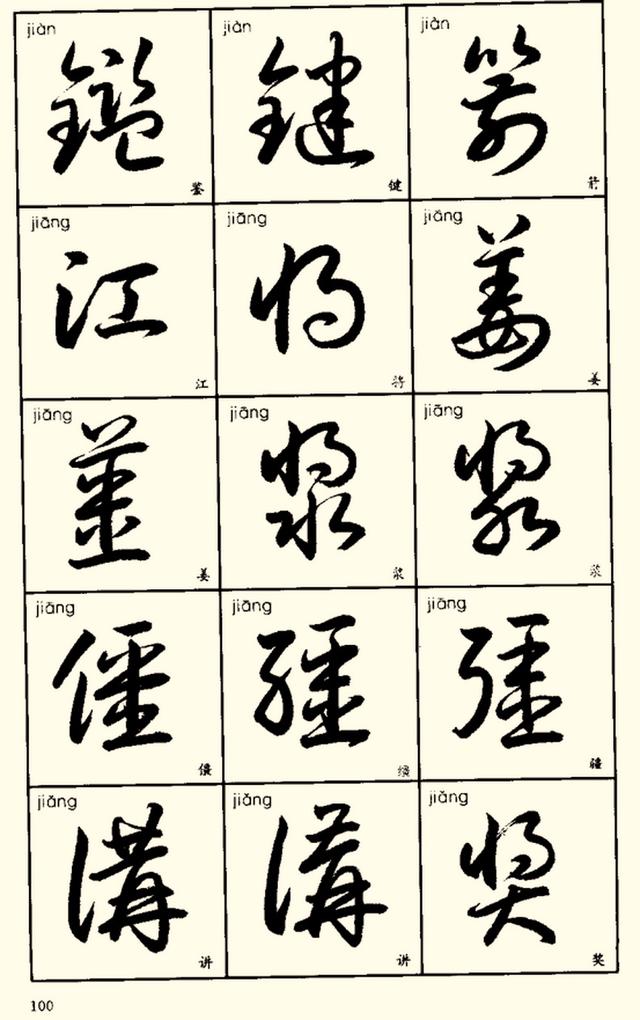 jiàn jiàn jiàn
鑑 鍵 箭
鉴 键 箭
jiāng jiāng jiāng
江 将 姜
江 将 姜
jiāng jiāng jiāng
薑 漿 漿
姜 浆 浆
jiāng jiāng jiāng
僵 繮 疆
僵 缰 疆
jiǎng jiǎng jiǎng
講 講 奬
讲 讲 奖
100